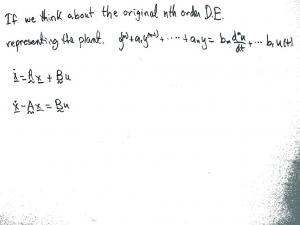 If we think about the original nth order D.E.
representing the plant. y⁽ⁿ⁾+a₁y⁽ⁿ⁻¹⁾+.....+aₙy = bₘ dᵐu/dt +... b₁u(t)
ẋ = Ax + Bu
ẋ - Ax = Bu